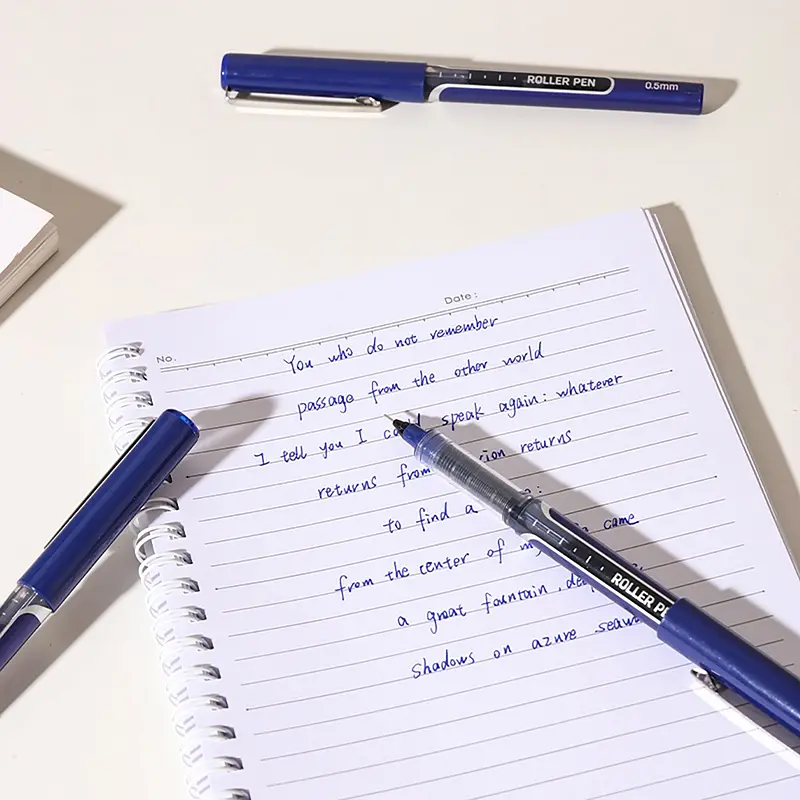 ROLLER PEN 0.5mm
Date:
No.
You who do not remember
passage from the other world
I tell you I speak again: whatever
returns from returns
to find a :
from the center of came
a great fountain,
shadows on azure
ROLLER